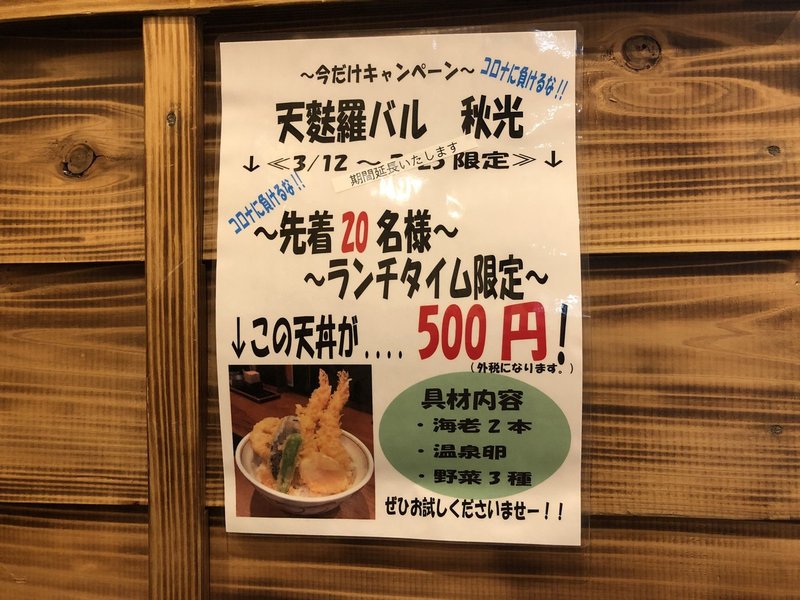 ~今だけキャンペーン~ コロナに負けるな!!
天麩羅バル 秋光
↓≪3/12~ 限定≫↓
期間延長いたします
コロナに負けるな!!
~先着20名様~
~ランチタイム限定~
↓この天丼が....500円!
(外税になります。)
具材内容
・海老2本
・温泉卵
・野菜3種
ぜひお試しくださいませー!!